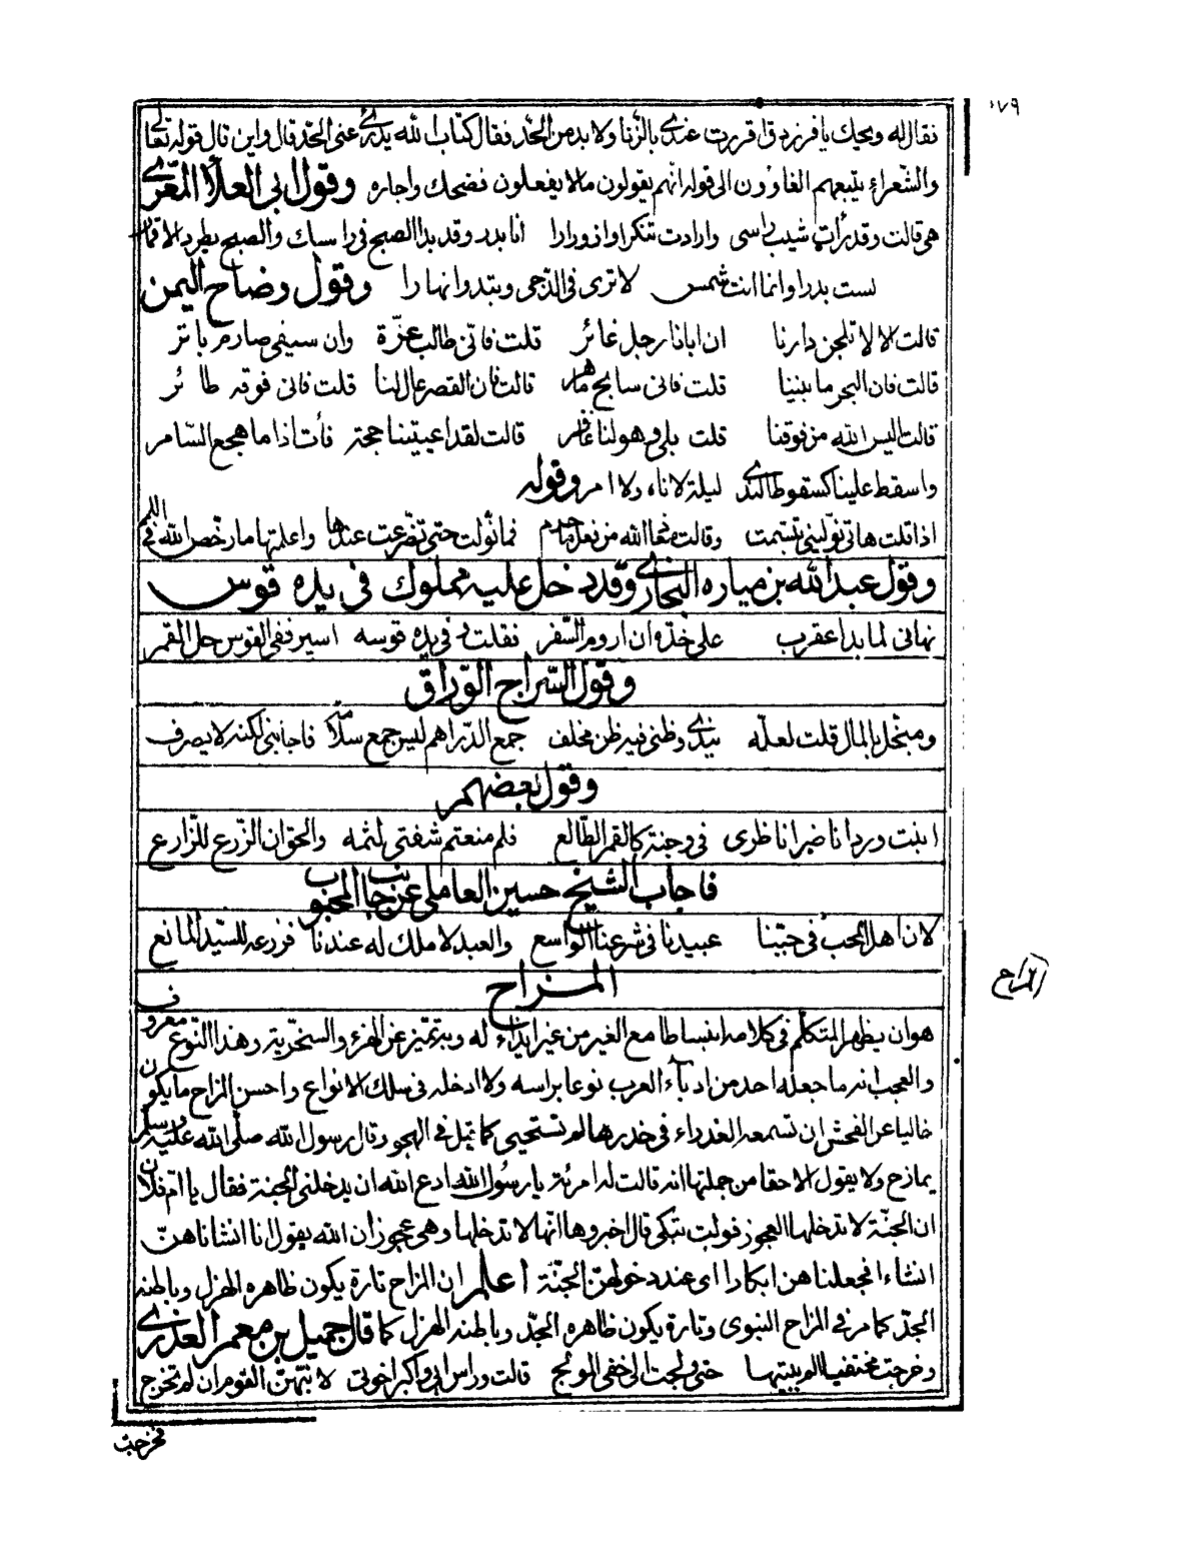 ١٧٩
فقال له ويحك يا فرزدق اقررت عندي بالزنا ولا بد من الحد فقال كتاب الله يدرئ عني الحد قال واين قال قوله تعالى
والشعراء يتبعهم الغاوون الى قوله انهم يقولون مالا يفعلون فضحك واجاره وقول ابي العلا المعري
هي قالت وقد رأت شيب راسى وارادت تنكرا وازورارا انا بدر وقد بدا الصبح في راسك والصبح يطرد الاقمار
لست بدرا وانما انت شمس لا ترى في الدجى وتبدو نهارا وقول وضاح اليمن
قالت الا لا تلجن دارنا ان ابانا رجل غائر قلت فاني طالب غرة وان سيفي صارم باتر
قالت فان البحر ما بيننا قلت فاني سابح ماهر قالت فان القصر عال لنا قلت فاني فوقه طائر
قالت اليس الله من فوقنا قلت بلى وهو لنا غافر قالت لقد اعييتنا حجة فأت اذا ما هجع السامر
واسقط علينا كسقوط الندى ليلة لا ناه ولا امر وقوله
اذا قلت هاتي نوليني تبسمت وقالت معاذ الله من فعل ما حرم فما نولت حتى تضرعت عندها واعلمتها ما رخص الله في اللمم
وقول عبد الله بن مياره البخاري وقد دخل عليه مملوك في يده قوس
نهاني لما بدا عقرب على خده ان اروم السفر فقلت وفي يده قوسه اسير ففي القوس حل القمر
وقول السراج الوراق
ومبخل بالمال قلت لعله يندى وظني فيه ظن مخلف جمع الدراهم ليس جمع سلامة فاجابني لكنه لا يصرف
وقول بعضهم
انبت وردا ناضرا ناظرى في وجنة كالقمر الطالع فلم منعتم شفتي لثمه والحق ان الزرع للزارع
فاجاب الشيخ حسين العاملي عن جانب المحبوب
لان اهل الحب في حبنا عبيدنا في شرعنا الواسع والعبد لا ملك له عندنا فزرعه للسيد المانع
المزاح
المزاح
هو ان يظهر المتكلم في كلامه انبساطا مع الغير من غير ايذاء له وبه تميز عن الهزء والسخرية وهذا النوع معروف
والعجب انه ما جعله احد من ادباء العرب نوعا براسه ولا ادخله في سلك الانواع واحسن المزاح ما يكون
خاليا عن الفحش ان تسمعه العذراء في خدرها لم تستحيى كما قيل في الهجو وقال رسول الله صلى الله عليه وسلم
يمازح ولا يقول الا حقا من جملتها انه قالت له امرئة يا رسول الله ادع الله ان يدخلني الجنة فقال يا ام فلان
ان الجنة لا تدخلها العجوز فولت تبكى قال اخبروها انها لا تدخلها وهي عجوز ان الله يقول انا انشاناهن
انشاء فجعلناهن ابكارا اى عند دخولهن الجنة اعلم ان المزاح تارة يكون ظاهره الهزل وباطنه
الجد كما مر في المزاح النبوى وتارة يكون ظاهره الجد وباطنه الهزل كما قال جميل بن معمر العذري
وخرجت مختفيا الم ببيتها حتى ولجت الى خفي المولج قالت وراس ابي واكبر اخوتي لانبهن القوم ان لم تخرج
فخرجت